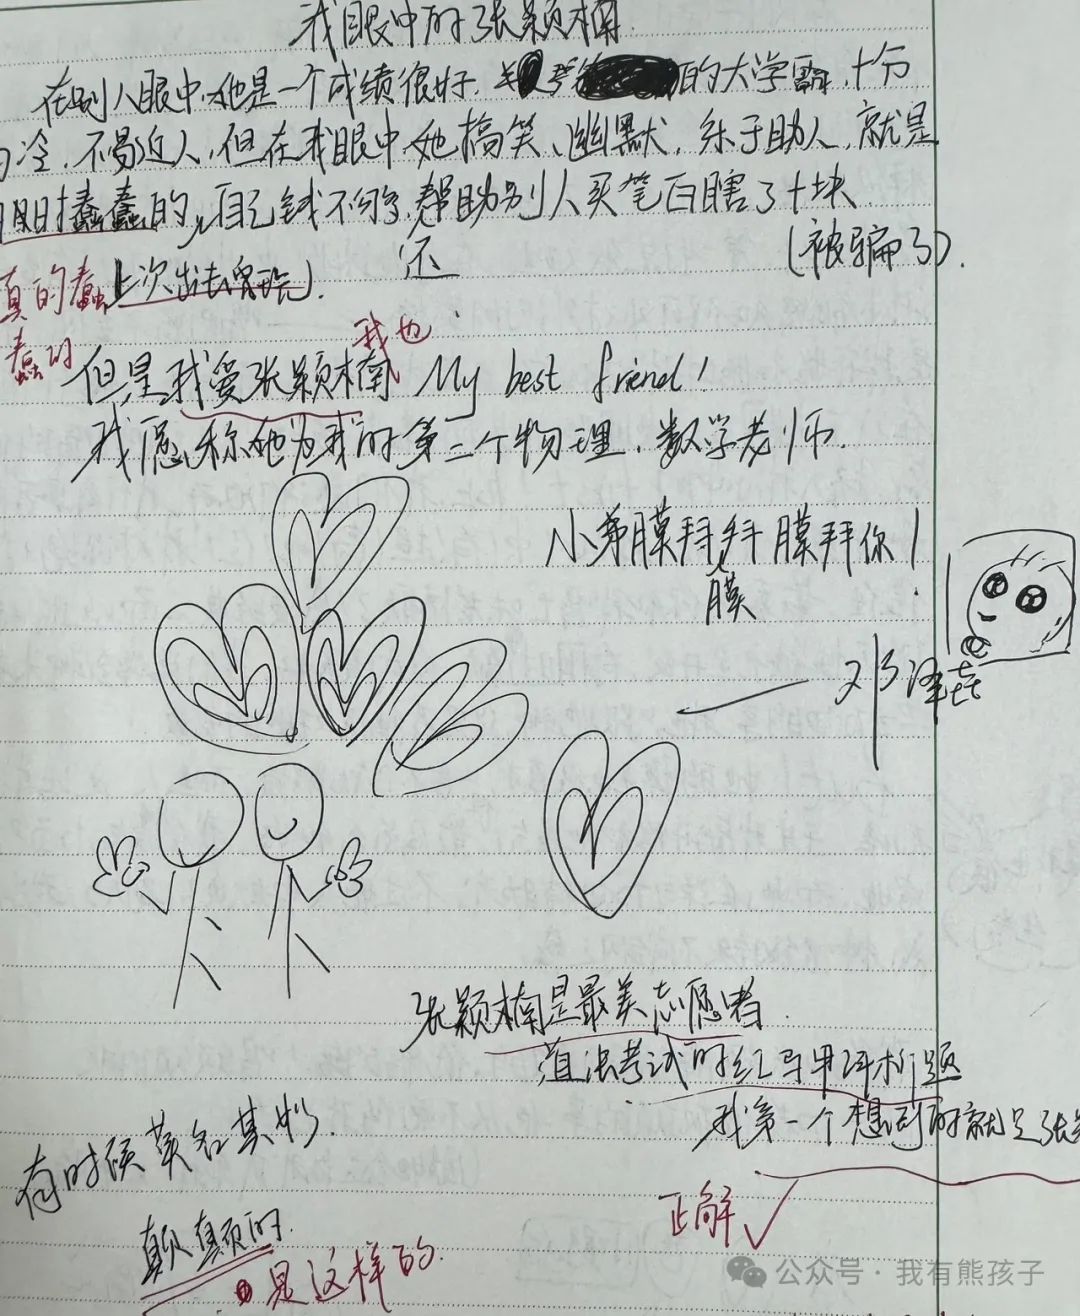 我眼中的张颖楠
在别人眼中,她是一个成绩很好, 的大学霸,十分
冷,不易近人,但在我眼中她搞笑、幽默,乐于助人,就是
时蠢蠢的,自己钱不够,帮助别人买笔白瞎了十块
还
(被骗了).
真的蠢 上次出去
蠢的
我也
但是我爱张颖楠 My best friend!
我愿称她为我的第二个物理,数学老师.
小弟膜拜拜膜拜你!
膜
张颖楠是最美志愿者.
道法考试的红马甲评析题
我第一个想到的就是张
有时候莫名其妙.
正解✓
颠颠的.
是这样的.
公众号·我有熊孩子